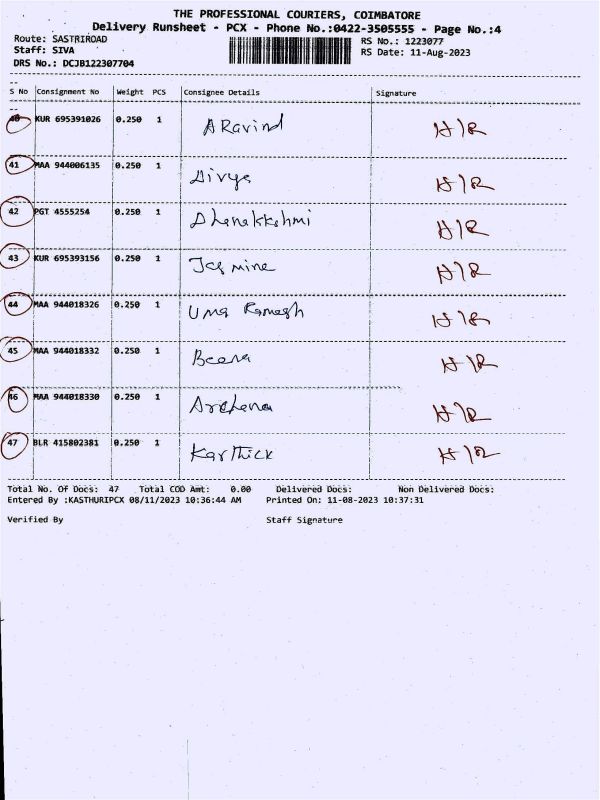 THE PROFESSIONAL COURIERS, COIMBATORE
Delivery Runsheet - PCX - Phone No.:0422-3505555 - Page No.:4
Route: SASTRIROAD RS No.: 1223077
Staff: SIVA RS Date: 11-Aug-2023
DRS No.: DCJB122307704
S No Consignment No Weight PCS Consignee Details Signature
40 KUR 695391026 0.250 1 ARavind H/R
41 MAA 944006135 0.250 1 Divya H/R
42 PGT 4555254 0.250 1 Dhanalakshmi H/R
43 KUR 695393156 0.250 1 Jasmine H/R
44 MAA 944018326 0.250 1 Uma Ramesh H/R
45 MAA 944018332 0.250 1 Beena H/R
46 MAA 944018330 0.250 1 Archana H/R
47 BLR 415802381 0.250 1 Karthick H/R
Total No. Of Docs: 47 Total COD Amt: 0.00 Delivered Docs: Non Delivered Docs:
Entered By :KASTHURIPCX 08/11/2023 10:36:44 AM Printed On: 11-08-2023 10:37:31
Verified By Staff Signature